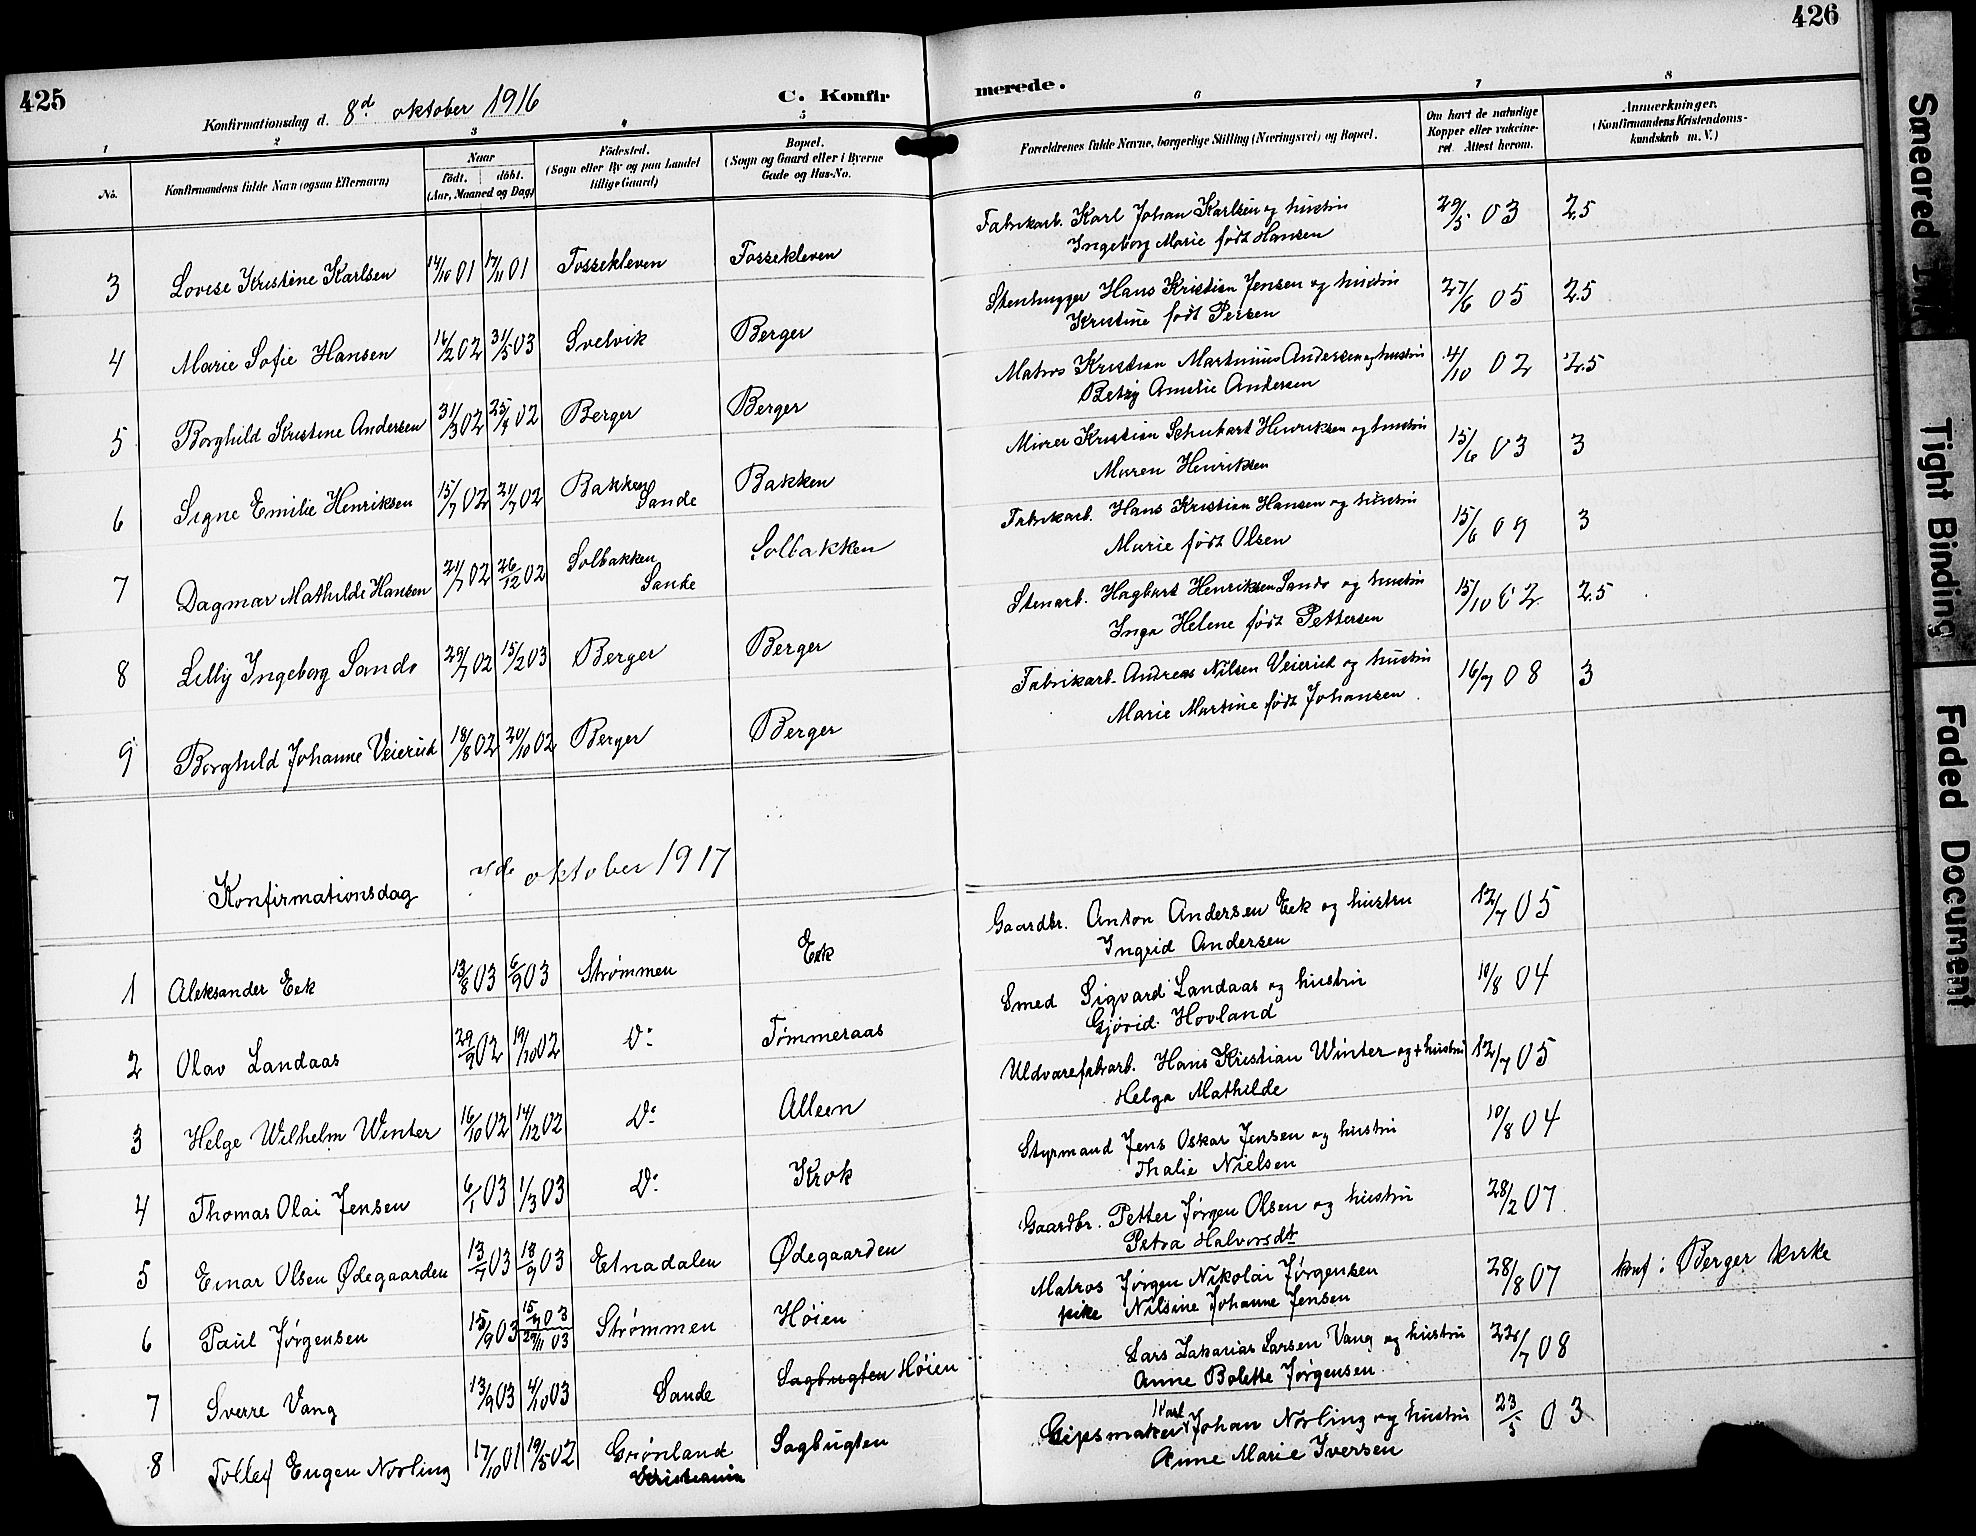 425
Konfirmationsdag d. 8d oktober 1916
C. Konfir
1 2 3 4 5
No.
Konfirmandens fulde Navn (ogsaa Efternavn)
Naar
født. døbt.
(Aar, Maaned og Dag)
Fødested.
(Sogn eller By og paa Landet
tillige Gaard)
Bopæl.
(Sogn og Gaard eller i Byerne
Gade og Hus-No.
3 Lovise Kristine Karlsen 14/10 01 17/11 01 Fossekleven Fossekleven
4 Marie Sofie Hansen 16/2 02 31/5 03 Svelvik Berger
5 Borghild Kristine Andersen 31/3 02 Berger Berger
6 Signe Emilie Henriksen 15/7 02 02 Bakken Sande Bakken
7 Dagmar Mathilde Hansen 02 26/12 02 Solbakken Sande Solbakken
8 Lilly Ingeborg Sando 29/7 02 15/2 03 Berger Berger
9 Borghild Johanne Veierud 18/8 02 20/10 02 Berger Berger
Konfirmationsdag oktober 1917
1 Aleksander Eek 13/8 03 6/9 03 Strømmen Eek
2 Olav Landaas 29/9 02 19/10 02 Do Tømmeraas
3 Helge Wilhelm Winter 16/10 02 14/12 02 Do Alleen
4 Thomas Olai Jensen 6/1 03 1/3 03 Do Krok
5 Einar Olsen Ødegaarden 13/7 03 18/9 03 Etnadalen Ødegaarden
6 Paul Jørgensen 15/9 03 29/11 03 Strømmen Høien
7 Sverre Vang 13/9 03 4/10 03 Sande Sagbugten Høien
8 Tollef Eugen Norling 17/10 01 19/5 02 Grønland Kristiania Sagbugten
426
merede.
6 7 8
Forældrenes fulde Navne, borgerlige Stilling (Næringsvei) og Bopæl.
Om havt de naturlige
Kopper eller vaccine-
ret. Attest herom.
Anmærkninger.
(Konfirmandens Kristendoms-
kundskab m. V.)
Fabrikarb. Karl Johan Karlsen og hustru 29/5 03 2.5
Ingeborg Marie født Hansen
Stenhugger Hans Kristian Jensen og hustru 27/6 05 2.5
Kristine født Persen
Matros Kristian Martinius Andersen og hustru 4/10 02 2.5
Betzy Amelie Andersen
Minerer Kristian Schubart Henriksen og hustru 15/6 03 3
Maren Henriksen
Fabrikarb. Hans Kristian Hansen og hustru 15/6 09 3
Marie født Olsen
Stenarb. Hagbart Henriksen Sando og hustru 15/10 02 2.5
Inga Helene født Pettersen
Fabrikarb. Andreas Nilsen Veierud og hustru 16/7 08 3
Marie Martine født Johansen
Gaardbr. Anton Andersen Eek og hustru 12/7 05
Ingrid Andersen
Smed Sigvard Landaas og hustru 10/8 04
Gjørid Hovland
Uldvarefabarb. Hans Kristian Winter og hustru 12/7 05
Helga Mathilde
Styrmand Jens Oskar Jensen og hustru 10/8 04
Thalie Nielsen
Gaardbr. Petter Jørgen Olsen og hustru 28/2 07
Petra Halvorsdt
Matros Jørgen Nikolai Jørgensen 28/8 07 konf: Berger kirke
pike Nilsine Johanne Jensen
Lars Zakarias Larsen Vang og hustru 22/7 08
Anne Bolette Jørgensen
Gipsmaker Karl Johan Norling og hustru 23/5 03
Anne Marie Iversen
Smeared Ink
Tight Binding
Faded Document